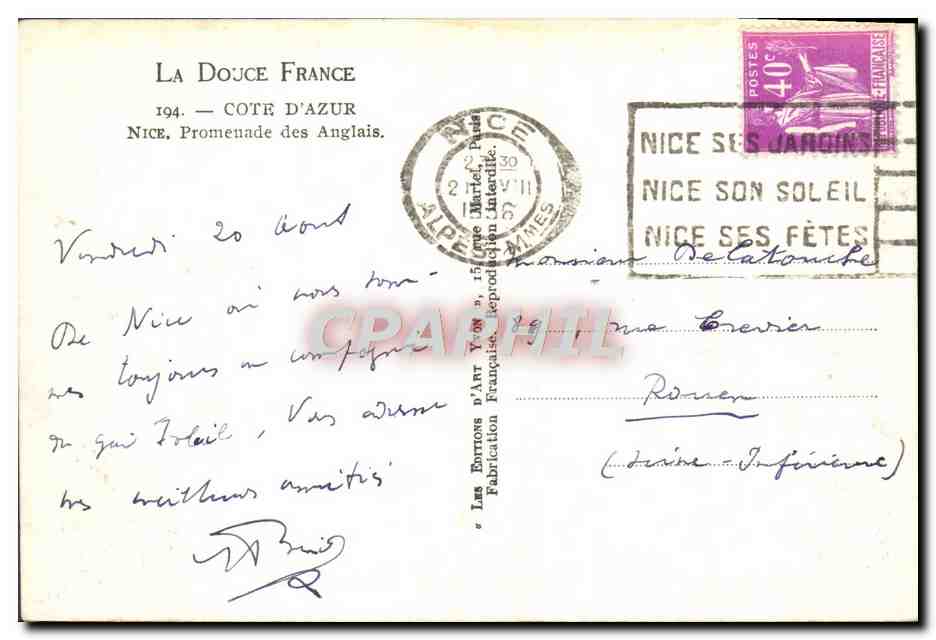 LA DOUCE FRANCE
194. — COTE D'AZUR
NICE, Promenade des Anglais.
POSTES
40c
FRANÇAISE
NICE
ALPES MMES
NICE SES JARDINS
NICE SON SOLEIL
NICE SES FÊTES
Vendredi 20 Aout
De Nice où nous som-
mes toujours en compagnie
du gai soleil, Vous adresse
mes meilleures amitiés
« LES EDITIONS D'ART YVON », 15, rue Martel, Paris
Fabrication Française. Reproduction interdite.
Monsieur Delatouche
89, rue Crevier
Rouen
(Seine-Inférieure)
CPAPHIL